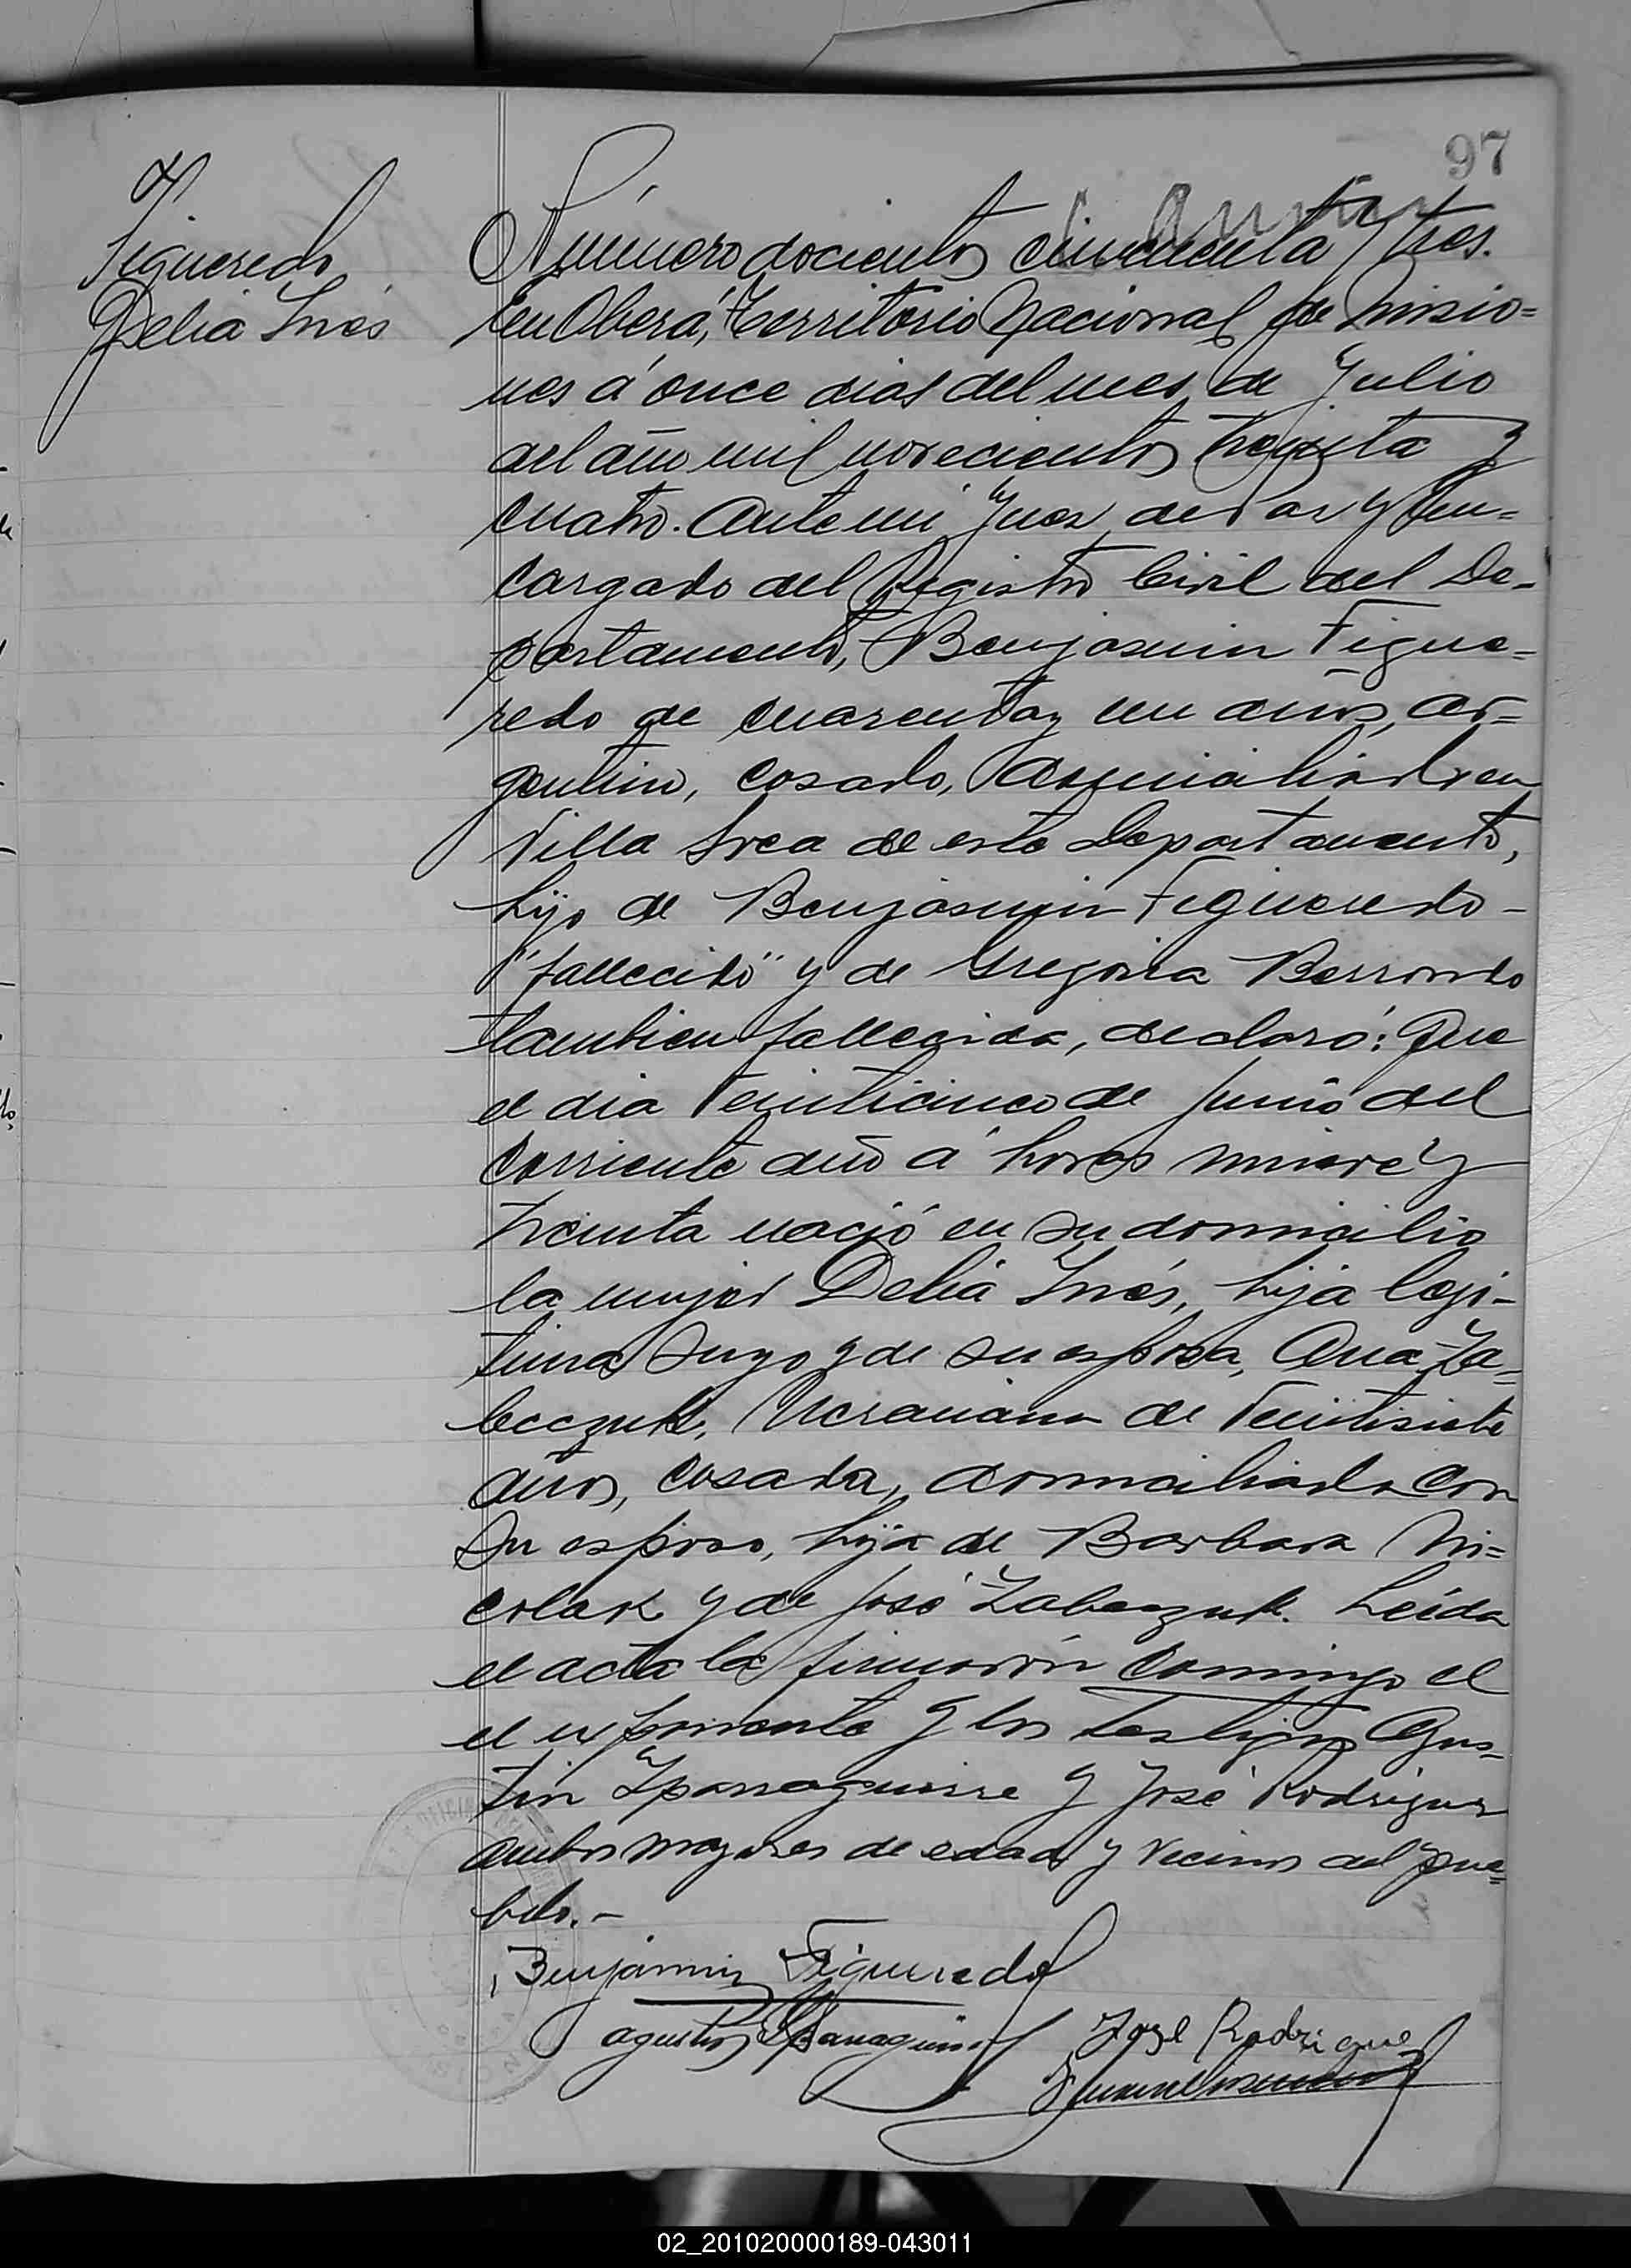 97
Figueredo
Delia Inés
Número docientos cincuenta y tres.
En Oberá, Territorio Nacional de Misio=
nes á once dias del mes de Julio
del año mil novecientos treinta y
cuatro. Ante mi Juez de Paz y En=
cargado del Registro Civil del De-
partamento, Benjamin Figue=
redo de cuarenta y un años, ar=
gentino, casado, domiciliado en
Villa Svea de este Departamento,
hijo de Benjamin Figueredo -
"fallecido" y de Gregoria Berrondo
tambien fallecida, declaró: Que
el dia veinticinco de Junio del
corriente año á horas nueve y
treinta nació en su domicilio
la mujer Delia Inés, hija legi-
tima suya y de su esposa, Ana Za=
beczuk, Ucraniana de veintisiete
años, casada, domiciliada con
su esposo, hija de Barbara Ni=
colak y de José Zabeczuk. Leida
el acta la firmaron conmigo el
el exponente y los testigos Agus-
tin Yparraguirre y José Rodriguez
ambos mayores de edad y vecinos del pue=
blo.-
Benjamin Figueredo
Agustin Yparraguirre José Rodriguez
02_201020000189-043011